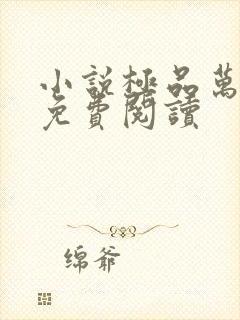 小說極品萬
免費閱讀
绵爷